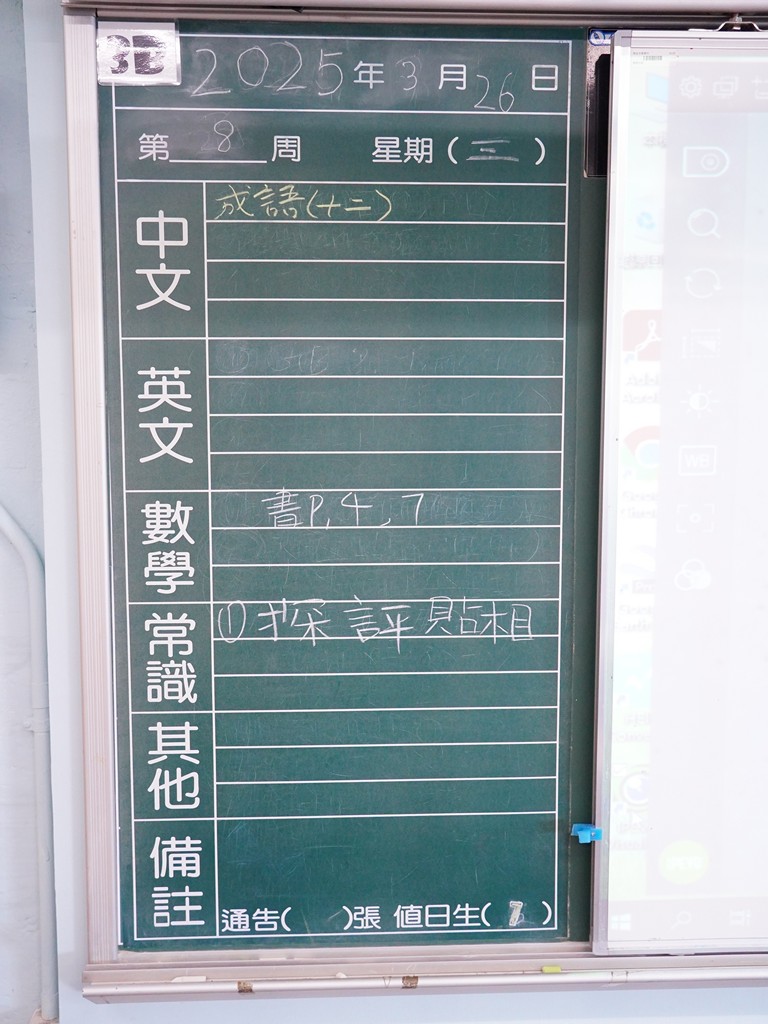 3B
2025年3月26日
第8周 星期(三)
中文
成語(十二)
英文
數學
書P.4,7
常識
①探評貼相
其他
備註
通告( )張 值日生(7)
WB